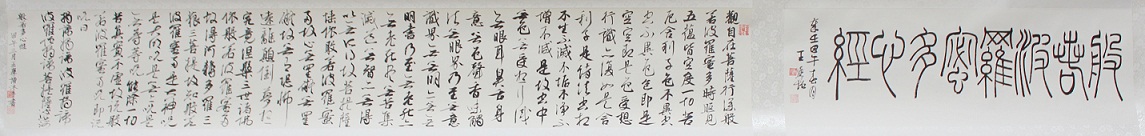 般若波羅蜜多心經
觀自在菩薩行深般
若波羅蜜多時照見
五蘊皆空度一切苦
厄舍利子色不異空
空不異色色即是
空空即是色受想
行識亦復如是舍
利子是諸法空相
不生不滅不垢不淨不
增不減是故空中
無色無受想行識
無眼耳鼻舌身
意無色聲香味觸
法無眼界乃至無意
識界無無明亦無無
明盡乃至無老死亦
無老死盡無苦集
滅道無智亦無得
以無所得故菩提薩
埵依般若波羅蜜多
故心無罣礙無罣
礙故無有恐怖
遠離顛倒夢想
究竟涅槃三世諸佛
依般若波羅蜜多
故得阿耨多羅三
藐三菩提故知般若
波羅蜜多是大神咒
是大明咒是無上咒是
無等等咒能除一切
苦真實不虛故說般
若波羅蜜多咒即說
咒曰
揭諦揭諦波羅揭諦
波羅僧揭諦菩提薩婆訶